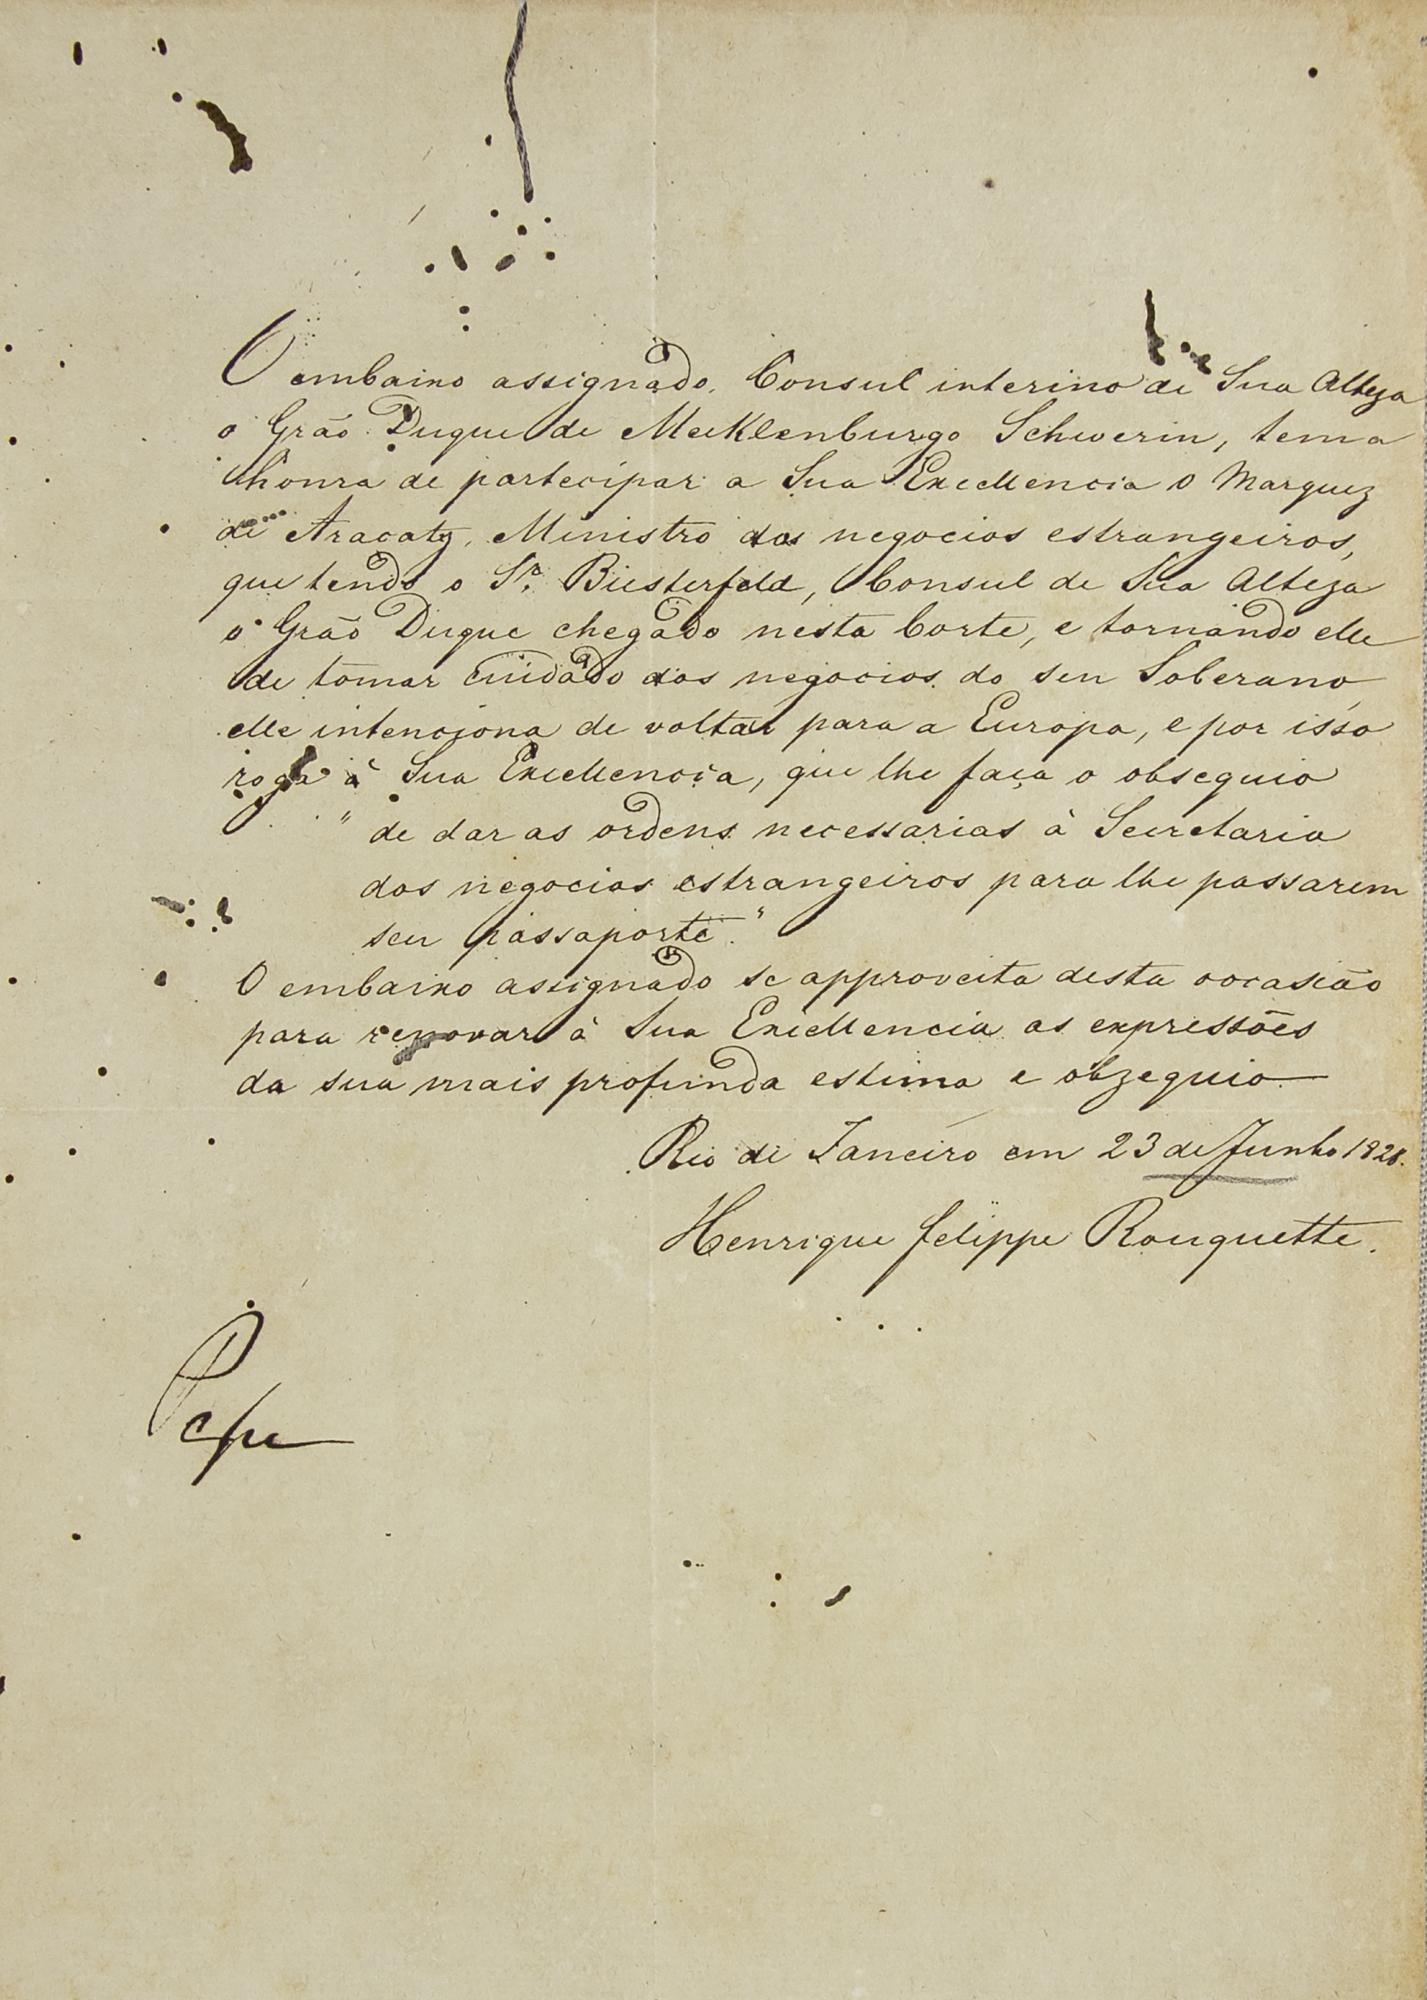 O embaixo assignado, Consul interino de Sua Alteza
o Grão Duque de Mecklenburgo Schwerin, tem a
honra de partecipar a Sua Excellencia o Marquez
de Aracaty, Ministro dos negocios estrangeiros,
que tendo o Sr. Biesterfeld, Consul de Sua Alteza
o Grão Duque chegado nesta Corte, e tornando elle
de tomar cuidado dos negocios do seu Soberano,
elle intenciona de voltar para a Europa, e por isso
roga à Sua Excellencia, que lhe faça o obsequio
" de dar as ordens necessarias à Secretaria
dos negocios estrangeiros para lhe passarem
seu passaporte."
O embaixo assignado se approveita desta occasião
para renovar à Sua Excellencia as expressões
da sua mais profunda estima e obzequio
Rio de Janeiro em 23 de Junho 1828.
Henrique Felippe Rouquette.